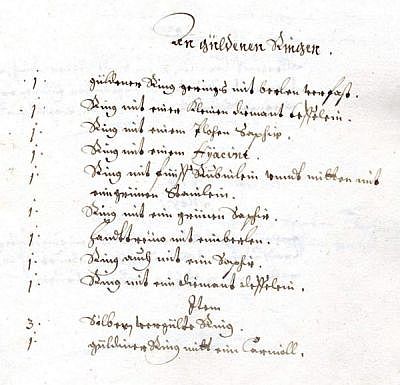 An güldenen Ringen.
1. güldener Ring gerings mit berlen versast.
1. Ring mit einer kleinen diemant tefelein.
1. Ring mit einem Saphir.
1. Ring mit einem Hyacint.
1. Ring mit fünff Rubinlein unndt mitten mit
ein grünen Stainlein.
1. Ring mit ein grünen Saphir.
1. handttreüo mit ein berlen.
1. Ring auch mit ein Saphir.
1. Ring mit ein diemant tefelein.
Item
3. Silbern vergülte Ring.
1. güldiner Ring mitt ein Carnioll.